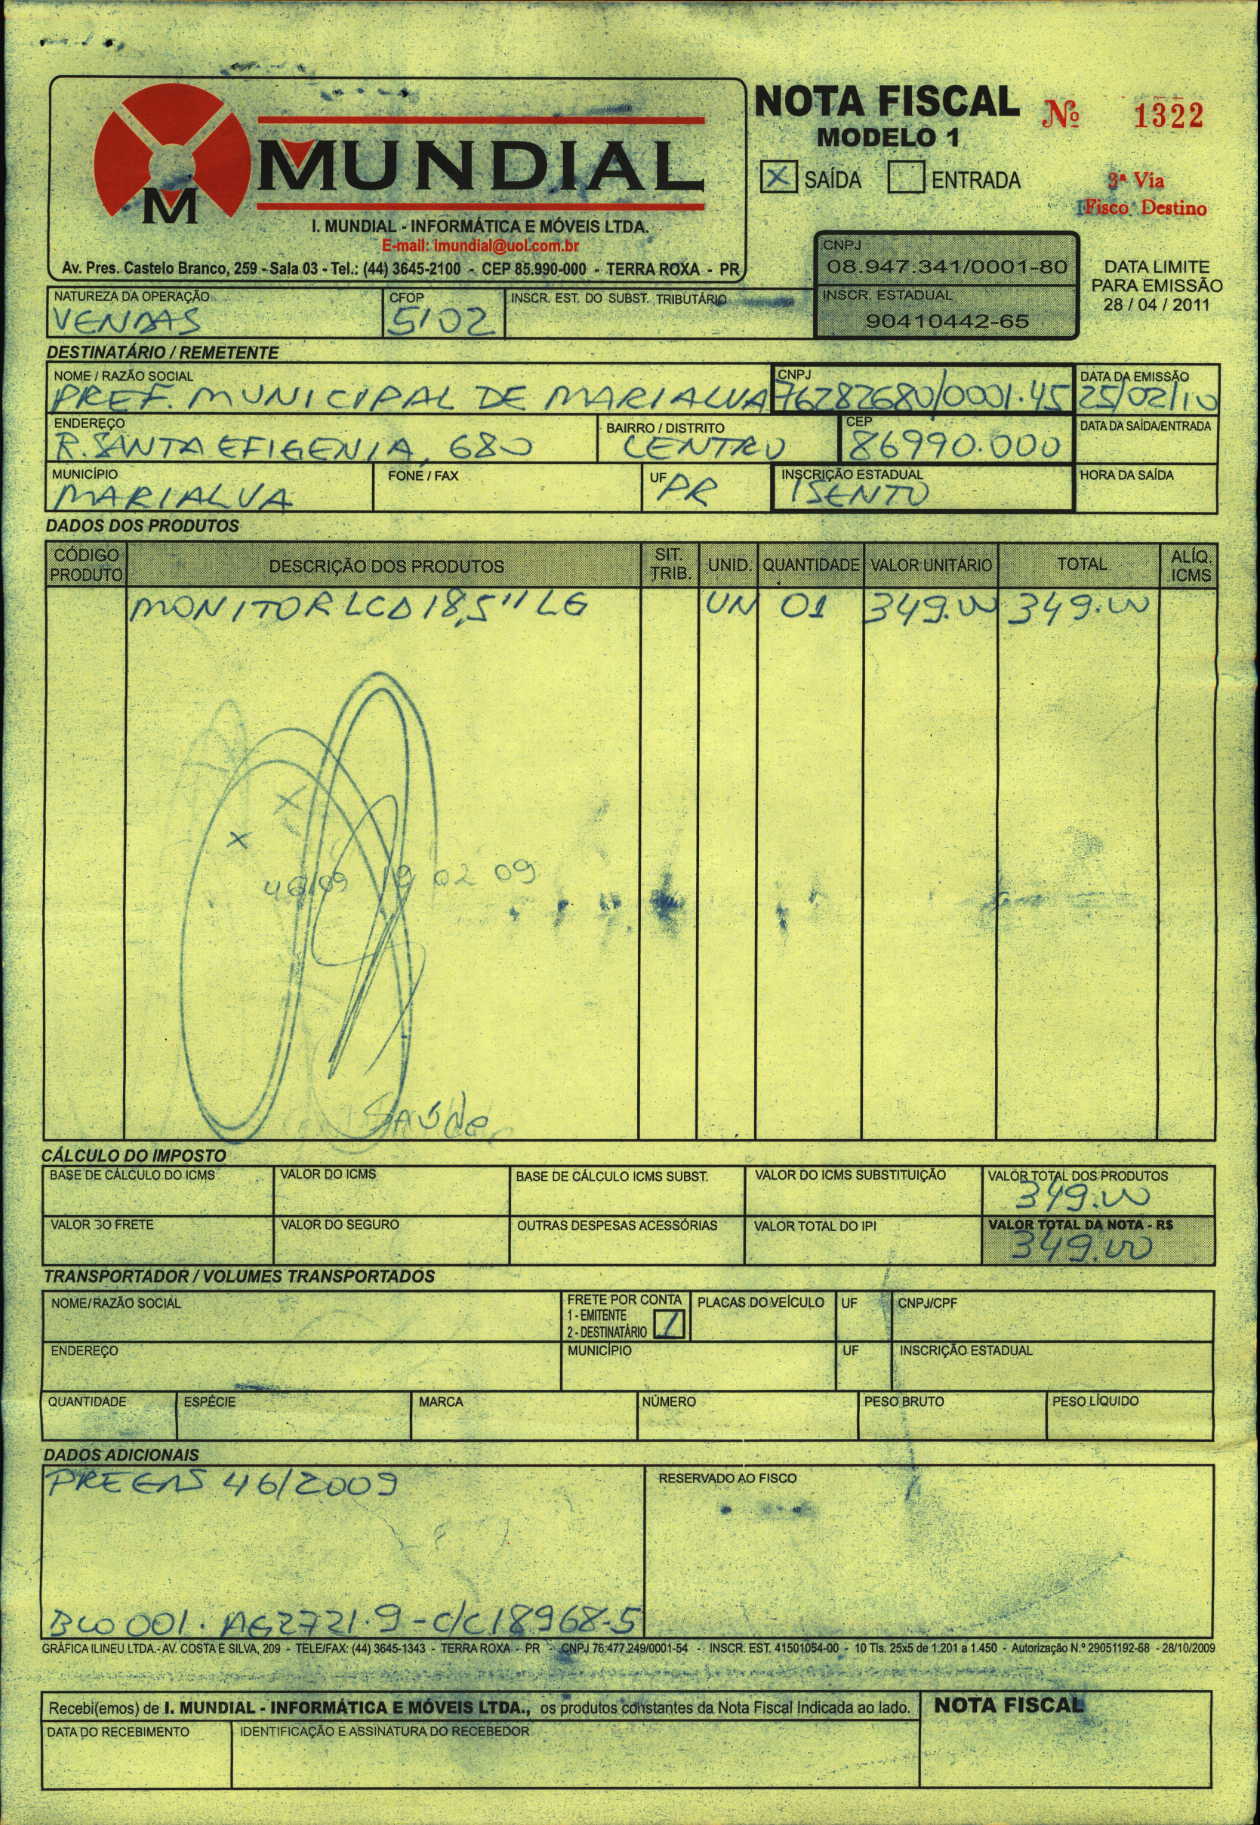 NOTA FISCAL Nº 1322
MODELO 1
MUNDIAL
M
SAÍDA X ENTRADA
3ª Via
Fisco Destino
I. MUNDIAL - INFORMÁTICA E MÓVEIS LTDA.
E-mail: imundial@uol.com.br
Av. Pres. Castelo Branco, 259 - Sala 03 - Tel.: (44) 3645-2100 - CEP 85.990-000 - TERRA ROXA - PR
CNPJ
08.947.341/0001-80
INSCR. ESTADUAL
90410442-65
DATA LIMITE
PARA EMISSÃO
28 / 04 / 2011
NATUREZA DA OPERAÇÃO CFOP INSCR. EST. DO SUBST. TRIBUTÁRIO
VENDAS 5102
DESTINATÁRIO / REMETENTE
NOME / RAZÃO SOCIAL CNPJ DATA DA EMISSÃO
PREF. MUNICIPAL DE MARIALVA 76282680/0001.45 25/02/10
ENDEREÇO BAIRRO / DISTRITO CEP DATA DA SAÍDA/ENTRADA
R. SANTA EFIGENIA, 680 CENTRO 86990.000
MUNICÍPIO FONE / FAX UF INSCRIÇÃO ESTADUAL HORA DA SAÍDA
MARIALVA PR ISENTO
DADOS DOS PRODUTOS
CÓDIGO PRODUTO DESCRIÇÃO DOS PRODUTOS SIT. TRIB. UNID. QUANTIDADE VALOR UNITÁRIO TOTAL ALÍQ. ICMS
MONITOR LCD 18,5" LG UN 01 349.00 349.00
46/09 19 02 09
Saúde
CÁLCULO DO IMPOSTO
BASE DE CÁLCULO DO ICMS VALOR DO ICMS BASE DE CÁLCULO ICMS SUBST. VALOR DO ICMS SUBSTITUIÇÃO VALOR TOTAL DOS PRODUTOS
349.00
VALOR DO FRETE VALOR DO SEGURO OUTRAS DESPESAS ACESSÓRIAS VALOR TOTAL DO IPI VALOR TOTAL DA NOTA - R$
349.00
TRANSPORTADOR / VOLUMES TRANSPORTADOS
NOME/RAZÃO SOCIAL FRETE POR CONTA 1 - EMITENTE 2 - DESTINATÁRIO 1 PLACAS DO VEÍCULO UF CNPJ/CPF
ENDEREÇO MUNICÍPIO UF INSCRIÇÃO ESTADUAL
QUANTIDADE ESPÉCIE MARCA NÚMERO PESO BRUTO PESO LÍQUIDO
DADOS ADICIONAIS
PREGAS 46/2009
RESERVADO AO FISCO
BCO 001. AG2721.9 - C/C 18968-5
GRÁFICA ILINEU LTDA.- AV. COSTA E SILVA, 209 - TELE/FAX: (44) 3645-1343 - TERRA ROXA - PR - CNPJ 76.477.249/0001-54 - INSCR. EST. 41501054-00 - 10 Tls. 25x5 de 1.201 a 1.450 - Autorização N.º 29051192-68 - 28/10/2009
Recebi(emos) de I. MUNDIAL - INFORMÁTICA E MÓVEIS LTDA., os produtos constantes da Nota Fiscal Indicada ao lado. NOTA FISCAL
DATA DO RECEBIMENTO IDENTIFICAÇÃO E ASSINATURA DO RECEBEDOR